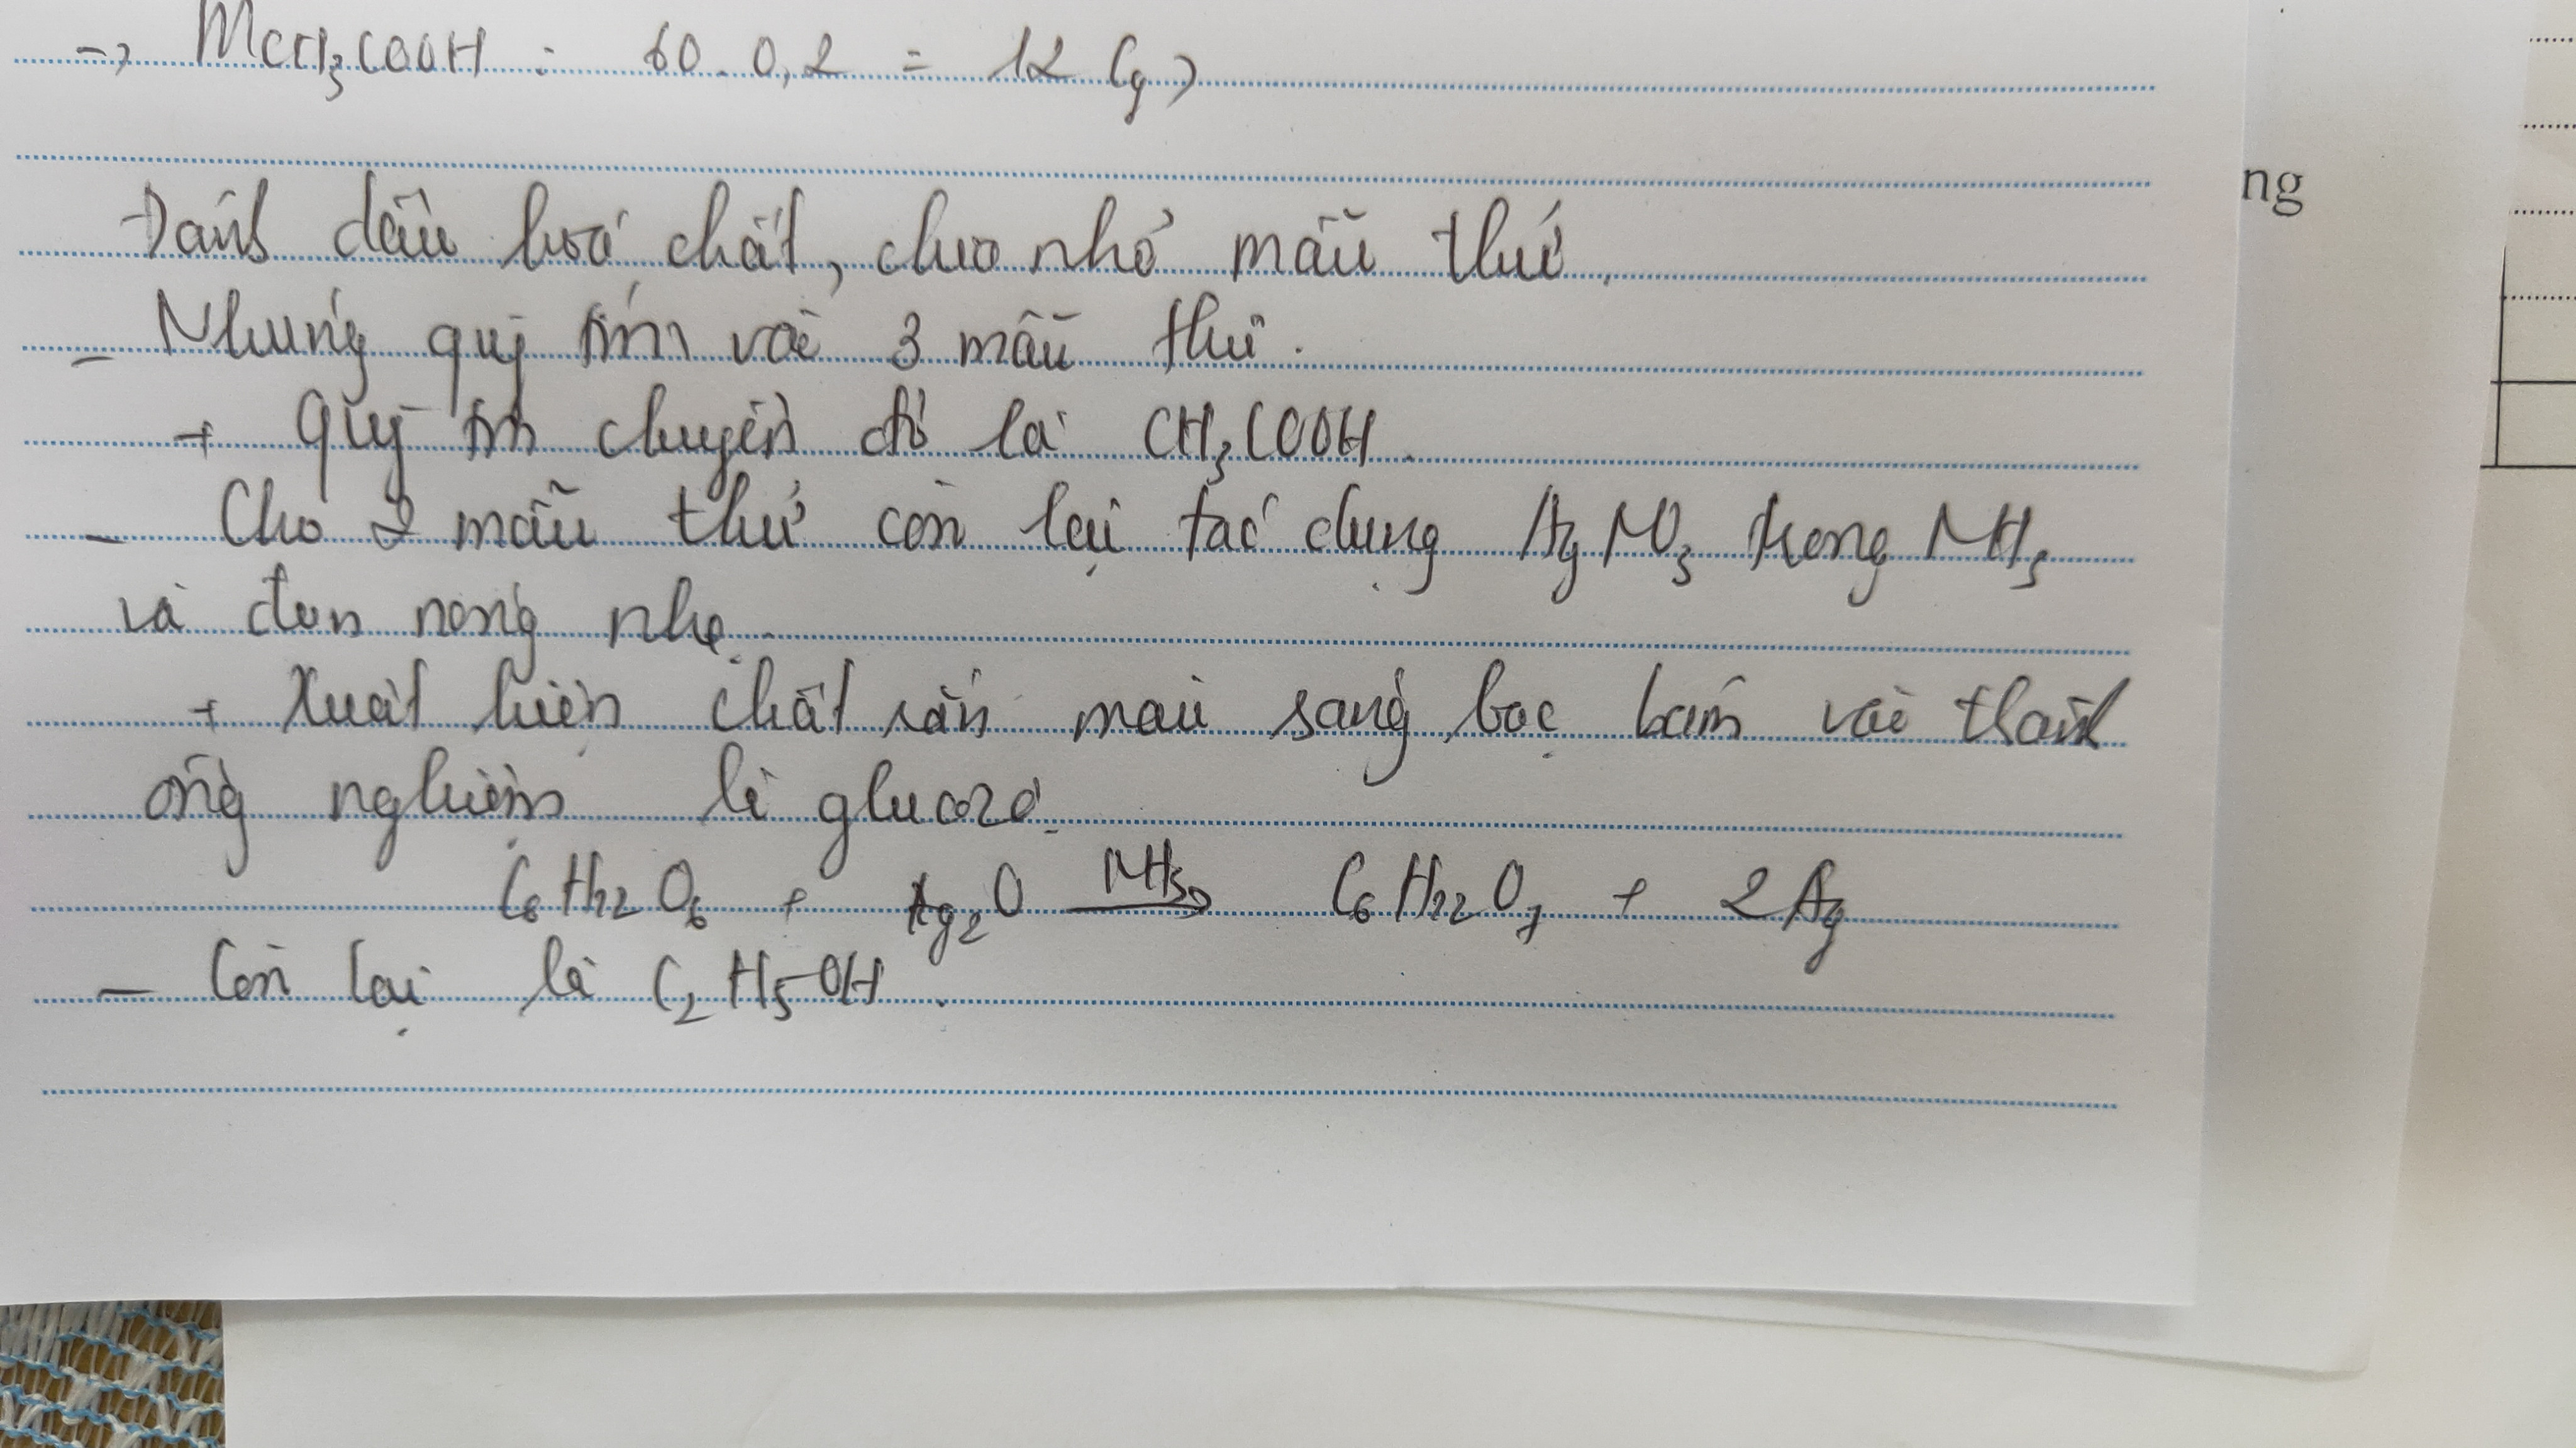 => mCH₃COOH : 60 . 0,2 = 12 (g)
ng
Đánh dấu hoá chất, chia nhỏ mẫu thử.
- Nhúng quỳ tím vào 3 mẫu thử.
+ Quỳ tím chuyển đỏ là CH₃COOH.
- Cho 2 mẫu thử còn lại tác dụng AgNO₃ trong NH₃
và đun nóng nhẹ.
+ Xuất hiện chất rắn màu sáng bạc bám vào thành
ống nghiệm là glucozơ.
C₆H₁₂O₆ + Ag₂O NH₃→ C₆H₁₂O₇ + 2Ag
- Còn lại là C₂H₅OH.